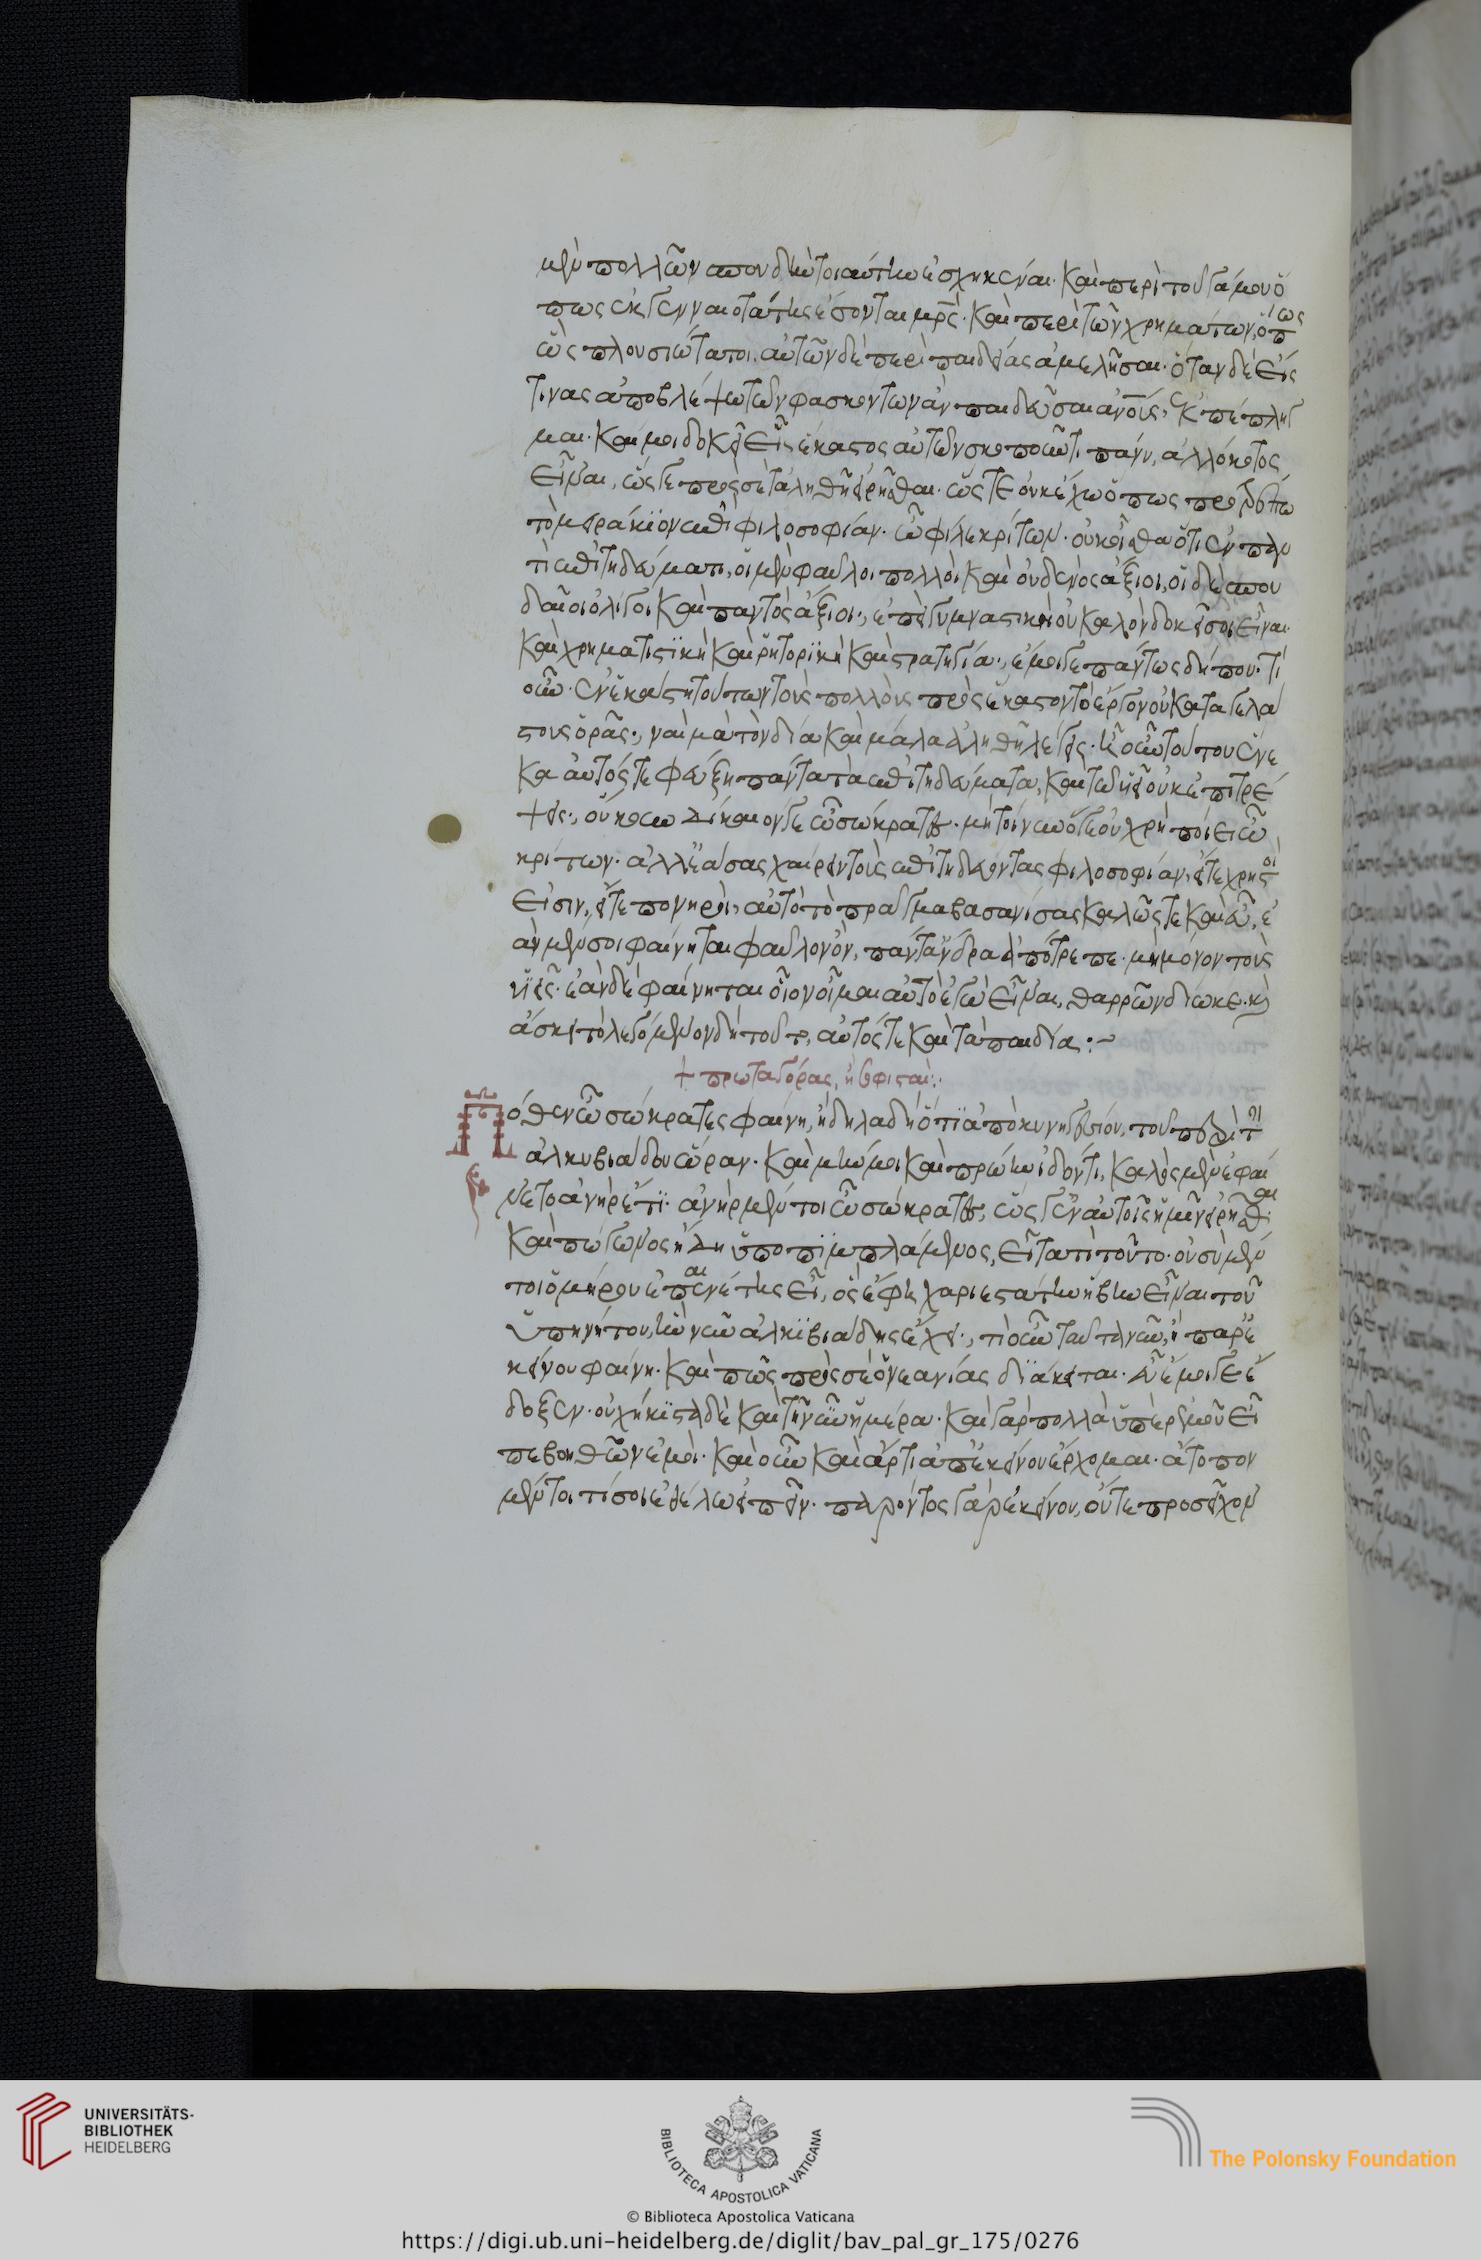 μὲν πολλῶν σπουδὴν τοιαύτην ἐσχηκέναι. καὶ περὶ τοῦ γάμου ὅ
πως ἐκ γενναιοτάτης ἔσονται μρς. καὶ περὶ τῶν χρημάτων, ὅπως
ὡς πλουσιώτατοι. αὐτῶν δὲ περὶ παιδείας ἀμελῆσαι. ὅταν δὲ εἴς
τινας ἀποβλέψω τῶν φασκόντων ἂν παιδεῦσαι ἀνους, ἐκπέπληγ
μαι. καί μοι δοκεῖ εἷς ἕκαστος αὐτῶν σκοποῦντι πάνυ, ἀλλόκοτος
εἶναι, ὥς γε πρὸς σὲ τἀληθῆ εἰρῆσθαι. ὥστε οὐκ ἔχω ὅπως προτρέπω
τὸ μειράκιον ἐπὶ φιλοσοφίαν. ὦ φίλε κρίτων. οὐκ οἶσθα ὅτι ἐν παν
τὶ ἐπιτηδεύματι, οἱ μὲν φαῦλοι πολλοὶ καὶ οὐδενὸς ἄξιοι, οἱ δὲ σπου
δαῖοι ὀλίγοι καὶ παντὸς ἄξιοι., ἐπεὶ γυμναστικὴ οὐ καλὸν δοκεῖ σοι εἶναι.
καὶ χρηματιστικὴ καὶ ῥητορικὴ καὶ στρατηγία., ἔμοιγε πάντως δήπου. τί
οὖν. ἐν ἑκάστῃ τούτων τοὺς πολλοὺς πρὸς ἕκαστον τὸ ἔργον οὐ καταγελά
στους ὁρᾷς., ναὶ μὰ τὸν δία καὶ μάλα ἀληθῆ λέγεις. ἦ οὖν τούτου ἕνε
κα αὐτός τε φεύξῃ πάντα τὰ ἐπιτηδεύματα, καὶ τῷ ὑεῖ οὐκ ἐπιτρέ
ψεις., οὔκουν δίκαιόν γε ὦ σώκρατες. μὴ τοίνυν ὅ γε οὐ χρὴ ποίει ὦ
κρίτων. ἀλλ' ἐάσας χαίρειν τοὺς ἐπιτηδεύοντας φιλοσοφίαν, εἴτε χρηστοί
εἰσιν, εἴτε πονηροὶ, αὐτὸ τὸ πρᾶγμα βασανίσας καλῶς τε καὶ εὖ, ἐ
ὰν μέν σοι φαίνηται φαῦλον ὂν, πάντ' ἄνδρα ἀπότρεπε. μὴ μόνον τοὺς
υἱεῖς. ἐὰν δὲ φαίνηται οἷον οἶμαι αὐτὸ ἐγὼ εἶναι, θαρρῶν δίωκε. καὶ
ἄσκει τὸ λεγόμενον δὴ τοῦτο, αὐτός τε καὶ τὰ παιδία:~
+ πρωταγόρας, ἢ σοφισταί:.
Πόθεν ὦ σώκρατες φαίνῃ, ἢ δῆλα δὴ ὅτι ἀπὸ κυνηγεσίου, τοῦ περὶ τὴν
ἀλκυβιάδου ὥραν. καὶ μὴν μοι καὶ πρώην ἰδόντι, καλὸς μὲν ἐφαί
νετο ἀνὴρ ἔτι. ἀνὴρ μέν τοι ὦ σώκρατες, ὥς γ' ἐν αὐτοῖς ἡμῖν εἰρῆσθαι.
καὶ πώγωνος ἤδη ὑποπιμπλάμενος, εἶτα τί τοῦτο. οὐ σὺ μέν
τοι ὁμήρου ἐπαινέτης εἶ, ὃς ἔφη χαριεστάτην ἥβην εἶναι τοῦ
ὑπηνήτου, ἣν νῦν ἀλκιβιάδης ἔχει., τί οὖν ταῦτα νῦν, ἦ παρ' ἐ
κείνου φαίνῃ. καὶ πῶς πρὸς σὲ ὁ νεανίας διάκειται. εὖ ἔμοιγε ἔ
δοξεν. οὐχ ἥκιστα δὲ καὶ τῇ νῦν ἡμέρα. καὶ γὰρ πολλὰ ὑπὲρ ἐμοῦ εἶ
πε βοηθῶν ἐμοί. καὶ οὖν καὶ ἄρτι ἀπ' ἐκείνου ἔρχομαι. ἄτοπον
μέντοι τί σοι ἐθέλω εἰπεῖν. παρόντος γὰρ ἐκείνου, οὔτε προσεῖχον
UNIVERSITÄTS-
BIBLIOTHEK
HEIDELBERG
BIBLIOTECA APOSTOLICA VATICANA
The Polonsky Foundation
© Biblioteca Apostolica Vaticana
https://digi.ub.uni-heidelberg.de/diglit/bav_pal_gr_175/0276